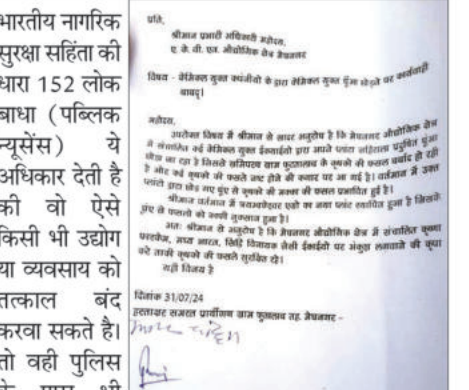 भारतीय नागरिक
सुरक्षा सहिंता की
धारा 152 लोक
बाधा (पब्लिक
न्यूसेंस) ये
अधिकार देती है
की वो ऐसे
किसी भी उद्योग
या व्यवसाय को
तत्काल बंद
करवा सकते है।
तो वही पुलिस
प्रति,
श्रीमान प्रभारी अधिकारी महोदय,
ए. के. वी. एन. औद्योगिक क्षेत्र मेघनगर
विषय - केमिकल युक्त कंपनीयो के द्वारा केमिकल युक्त धुंआ छोड़ने पर कार्यवाही
बाबद्।
महोदय,
उपरोक्त विषय में श्रीमान से सादर अनुरोध है कि मेघनगर औद्योगिक क्षेत्र
में संचालित कई केमिकल युक्त ईकाईयो द्वारा अपने प्लांटो जहरिला प्रदुषित धुंआ
छोडा जा रहा है जिससे समिपस्थ ग्राम फुतालाब के कृषको की फसल बर्बाद हो रही
है और कई कृषको कि फसले नष्ट होने की कगार पर आ गई है। वर्तमान में उक्त
प्लांटो द्वारा छोडे गए धुंए से कृषको की मक्का की फसल प्रभावित हुई है।
श्रीमान वर्तमान में एग्रो का नया प्लांट स्थापित हुआ है जिसके
धुंए से फसलो को काफी नुकसान हुआ है।
अतः श्रीमान से अनुरोध है कि मेघनगर औद्योगिक क्षेत्र में संचालित कृष्णा
फास्केम, मध्य भारत, सिद्दि विनायक जैसी ईकाईयो पर अंकुश लगवाने की कृपा
करे ताकी कृषको की फसले सुरक्षित रहे।
यही विनय है
दिनांक 31/07/24
हस्ताक्षर समस्त ग्रामीणण ग्राम फुतालाब तह. मेघनगर -